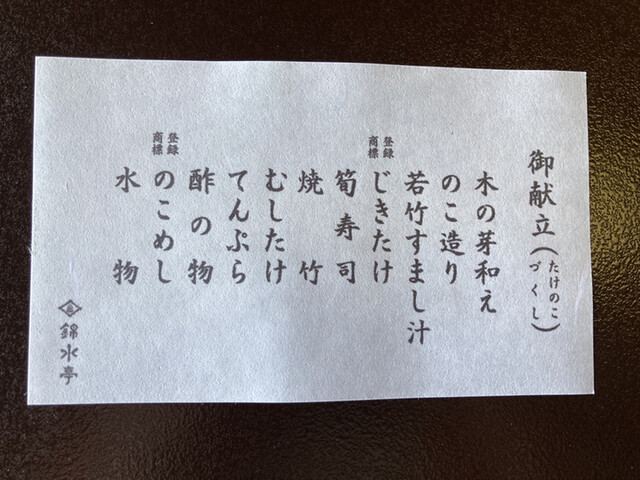 御献立(たけのこづくし)
木の芽和え
のこ造り
若竹すまし汁
登録商標 じきたけ
筍寿司
焼竹
むしたけ
てんぷら
酢の物
登録商標 のこめし
水物
錦水亭